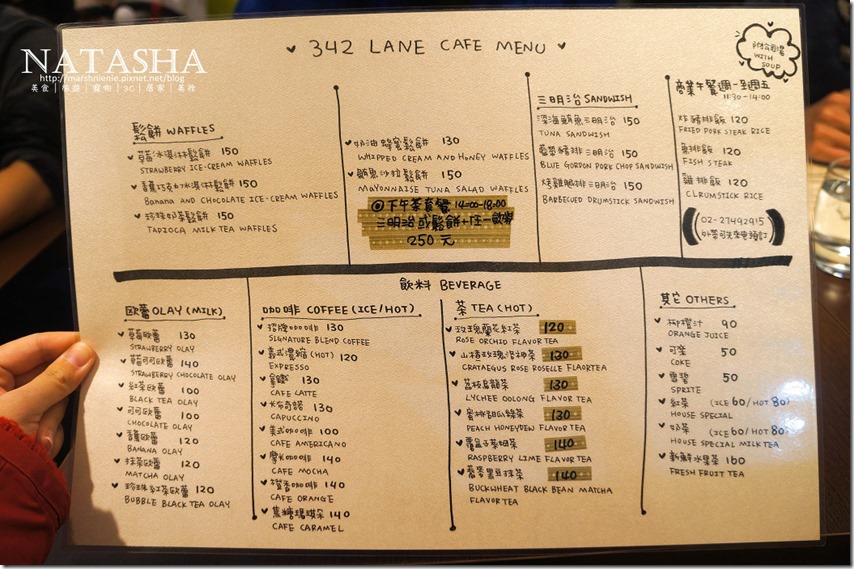 NATASHA
http://marshnienie.pixnet.net/blog
美食｜旅遊｜寵物｜3C｜居家｜美妝
342 LANE CAFE MENU
附餐例湯
WITH
SOUP
鬆餅 WAFFLES
草莓冰淇淋鬆餅 150
STRAWBERRY ICE-CREAM WAFFLES
香蕉巧克力冰淇淋鬆餅 150
Banana AND CHOCOLATE ICE-CREAM WAFFLES
珍珠奶茶鬆餅 150
TAPIOCA MILK TEA WAFFLES
奶油蜂蜜鬆餅 130
WHIPPED CREAM AND HONEY WAFFLES
鮪魚沙拉鬆餅 150
MAYONNAISE TUNA SALAD WAFFLES
下午茶套餐 14:00-18:00
三明治或鬆餅+任一飲料
250元
三明治 SANDWISH
深海鮪魚三明治 150
TUNA SANDWISH
藍帶豬排三明治 150
BLUE GORDON PORK CHOP SANDWISH
烤雞腿排三明治 150
BARBECUED DRUMSTICK SANDWISH
商業午餐週一到週五
11:30-14:00
炸豬排飯 120
FRIED PORK STEAK RICE
魚排飯 120
FISH STEAK
雞排飯 120
CLRUMSTICK RICE
02-27492915
外帶可先來電預訂
飲料 BEVERAGE
歐蕾 OLAY (MILK)
草莓歐蕾 130
STRAWBERRY OLAY
草莓可可歐蕾 140
STRAWBERRY CHOCOLATE OLAY
紅茶歐蕾 100
BLACK TEA OLAY
可可歐蕾 100
CHOCOLATE OLAY
香蕉歐蕾 120
BANANA OLAY
抹茶歐蕾 120
MATCHA OLAY
珍珠紅茶歐蕾 120
BUBBLE BLACK TEA OLAY
咖啡 COFFEE (ICE/HOT)
招牌咖啡 130
SIGNATURE BLEND COFFEE
義式濃縮 (HOT) 120
EXPRESSO
拿鐵 130
CAFE LATTE
卡布奇諾 130
CAPPUCINO
美式咖啡 100
CAFE AMERICANO
摩卡咖啡 140
CAFE MOCHA
橙香咖啡 140
CAFE ORANGE
焦糖瑪琪朵 140
CAFE CARAMEL
茶 TEA (HOT)
玫瑰蘭花紅茶 120
ROSE ORCHID FLAVOR TEA
山楂玫瑰洛神茶 130
CRATAEGUS ROSE ROSELLE FLAORTEA
荔枝烏龍茶 130
LYCHEE OOLONG FLAVOR TEA
蜜桃甜瓜綠茶 130
PEACH HONEYDEW FLAVOR TEA
覆盆子萊姆茶 140
RASPBERRY LIME FLAVOR TEA
蕎麥黑豆抹茶 140
BUCKWHEAT BLACK BEAN MATCHA
FLAVOR TEA
其它 OTHERS
柳橙汁 90
ORANGE JUICE
可樂 50
COKE
雪碧 50
SPRITE
紅茶 (ICE 60/HOT 80)
HOUSE SPECIAL
奶茶 (ICE 60/HOT 80)
HOUSE SPECIAL MILK TEA
新鮮水果茶 160
FRESH FRUIT TEA